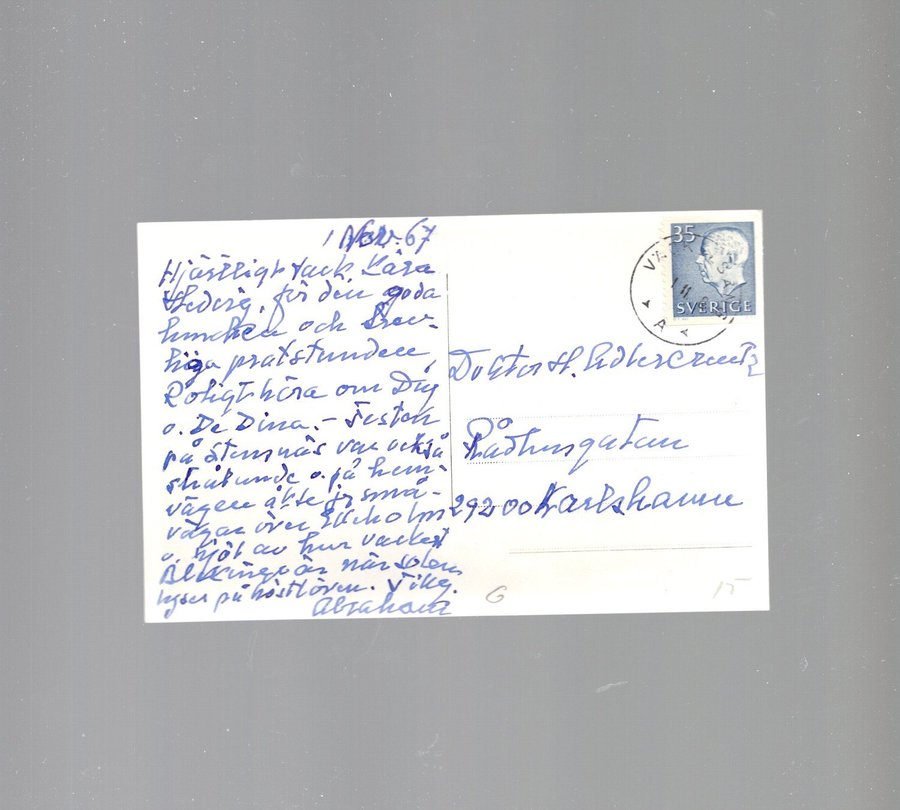 1 Nov. 67
Hjärtligt tack Kära
Hedvig, för den goda
lunchen och trev-
liga pratstunden,
Roligt höra om Dig
o. De Dina. - Festen
på Stensnäs var också
strålande o. på hem-
vägen åkte jg små-
vägar över Ekholm
o. njöt av hur vackert
Blekinge är när solen
lyser på höstlöven. Tillg.
Abraham
35
SVERIGE
A
Doktor H. Adlercreutz
Rådhusgatan
29200 Karlshamn
G
15